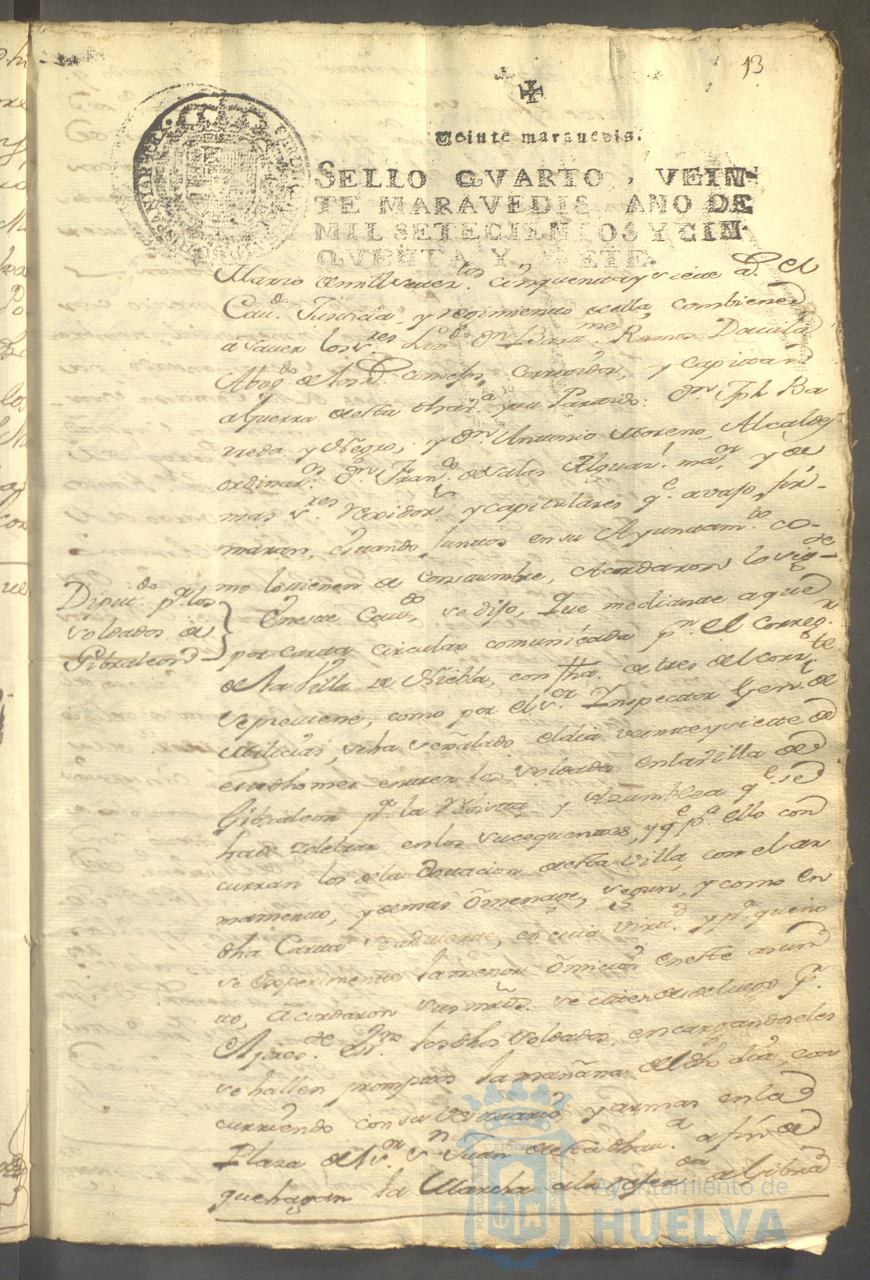 13
Veinte maravedis.
SELLO QVARTO, VEIN-
TE MARAVEDIS, AÑO DE
MIL SETECIENTOS Y CIN-
QVENTA Y SIETE.
Marzo mill setez.tos cinquenta y siete a.s el
Cav.do Justicia, y regimiento de ella, combiene
a saver los s.res Liz.do Dn Bar.me Ramos Davila
Abog.do de los R.s consejos, Corregidor, y capitan
a guerra de esta dha v.a y su Partido: Dn Jph Ba
rreda y Negro, y Dn Antonio Moreno, Alcaldes
ordinar.os Dn Fran.co de Salas Alguar.l ma.or y de
mas s.res Rexidor.s y capitulares q.e avajo fir-
maran, estando juntos en su Ayuntam.to co-
mo lo tienen de constumbre, Acordaron lo sig.te
Diput.do p.a los
soldados a
Gibraleon
En este Cav.do se dijo, que mediante a que
por carta circular comunicada p.r el Correg.r
de la Villa de Niebla, con fha. de tres del corr.te
se previene, como por el s.or Inspector Gen.l de
Milicias, se ha señalado el dia veinte y siete de
este dho mes entren los soldados en la villa de
Gibraleon p.a la Revista y Asamblea q.e se
hade zelebrar en los sucequentes, y q.e p.a ello con
curran los de la Dotacion de esta Villa, con el ar
mamento, y demas omenage, segun, y como en
dha Carta se adbierte, en cuia virtud y p.a que no
se experimente la menor omicion en este asun
to, Acordaron sus mrds. se citen desde luego p.r
los dhos soldados, encargandoles
se hallen promptos la mañana del dho dia, con
curriendo con su vestuario y armas en la
Plaza de s.or s.n Juan de esta dha v.a a fin de
que hagan la Marcha a la de Gibra
Ayuntamiento de
HUELVA